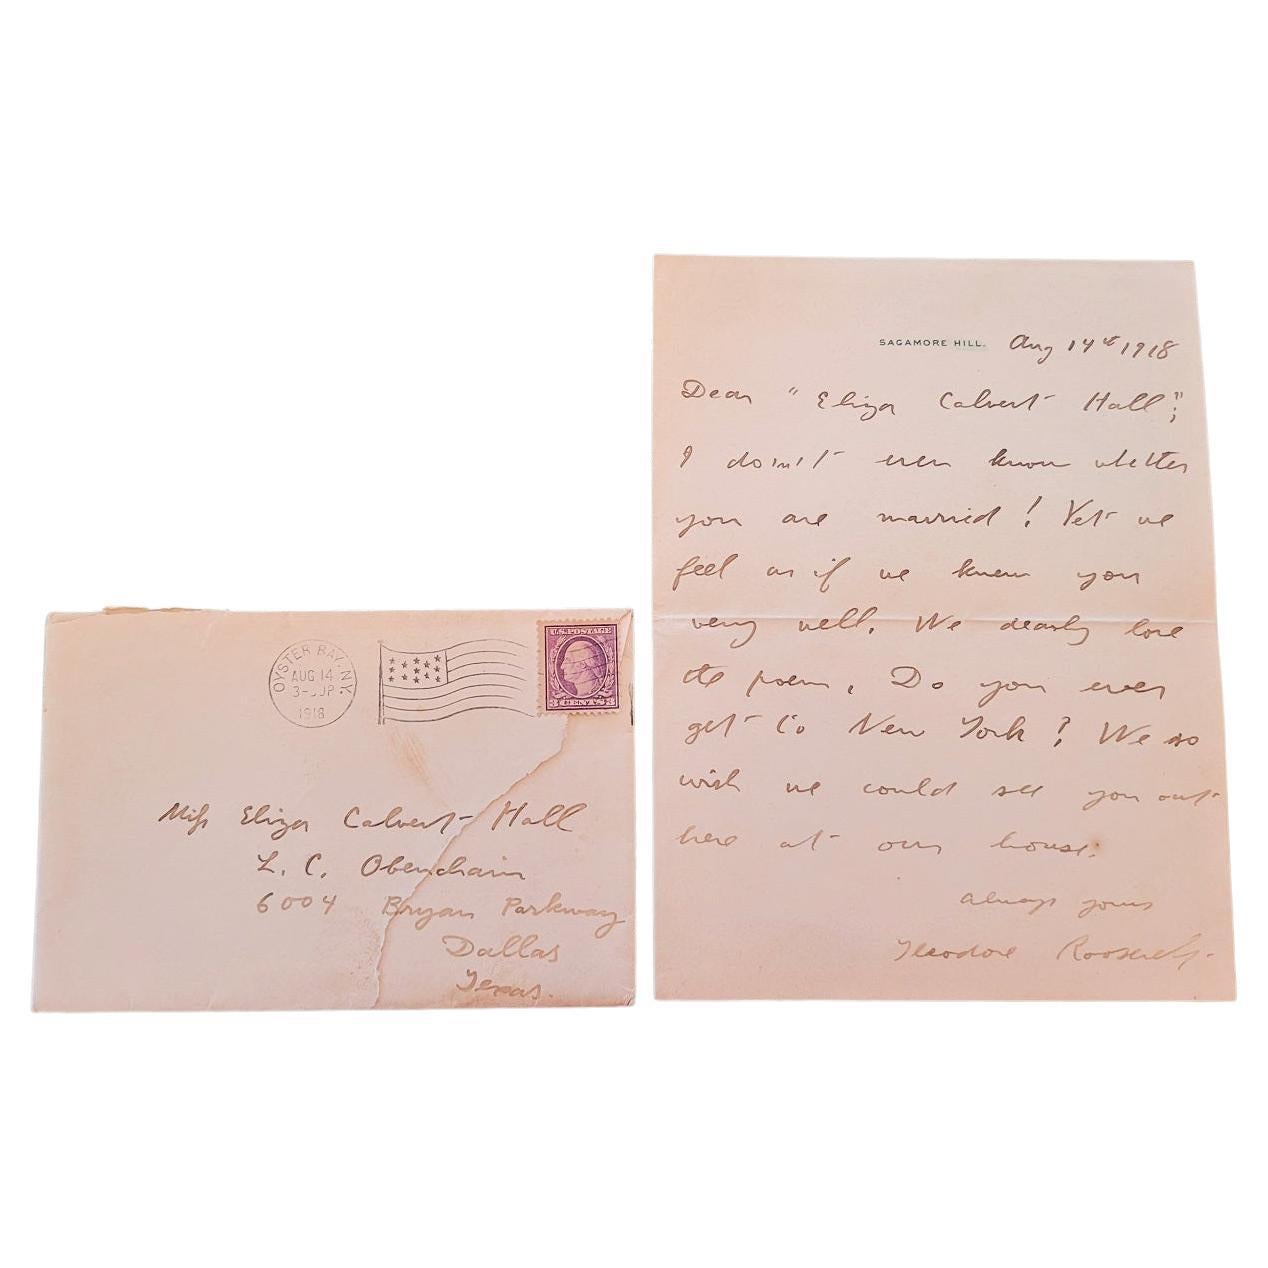 OYSTER BAY, N.Y.
AUG 14
3-
1918
U.S. POSTAGE
3 CENTS 3
Miss Eliza Calvert Hall
L. C. Obenchain
6004 Bryan Parkway
Dallas
Texas.
SAGAMORE HILL. Aug 14th 1918
Dear "Eliza Calvert Hall";
I don't even know whether
you are married! Yet we
feel as if we knew you
very well. We dearly love
the poem. Do you ever
get to New York? We so
wish we could see you out
here at our house.
Always yours
Theodore Roosevelt.